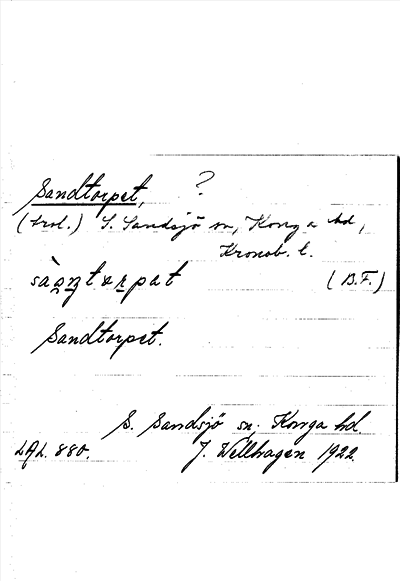 Sandtorpet, ?
(trol.) S. Sandsjö sn, Konga hd,
Kronob. l.
sàn̲z̲tor̲pat (B.F.)
Sandtorpet.
S. Sandsjö sn. Konga hd.
LAL. 880. J. Wellhagen 1922.